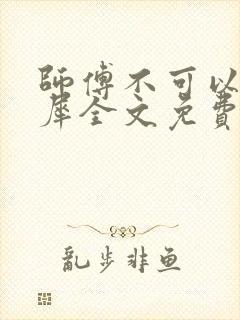 師傅不可以
犀全文免費
亂步非鱼